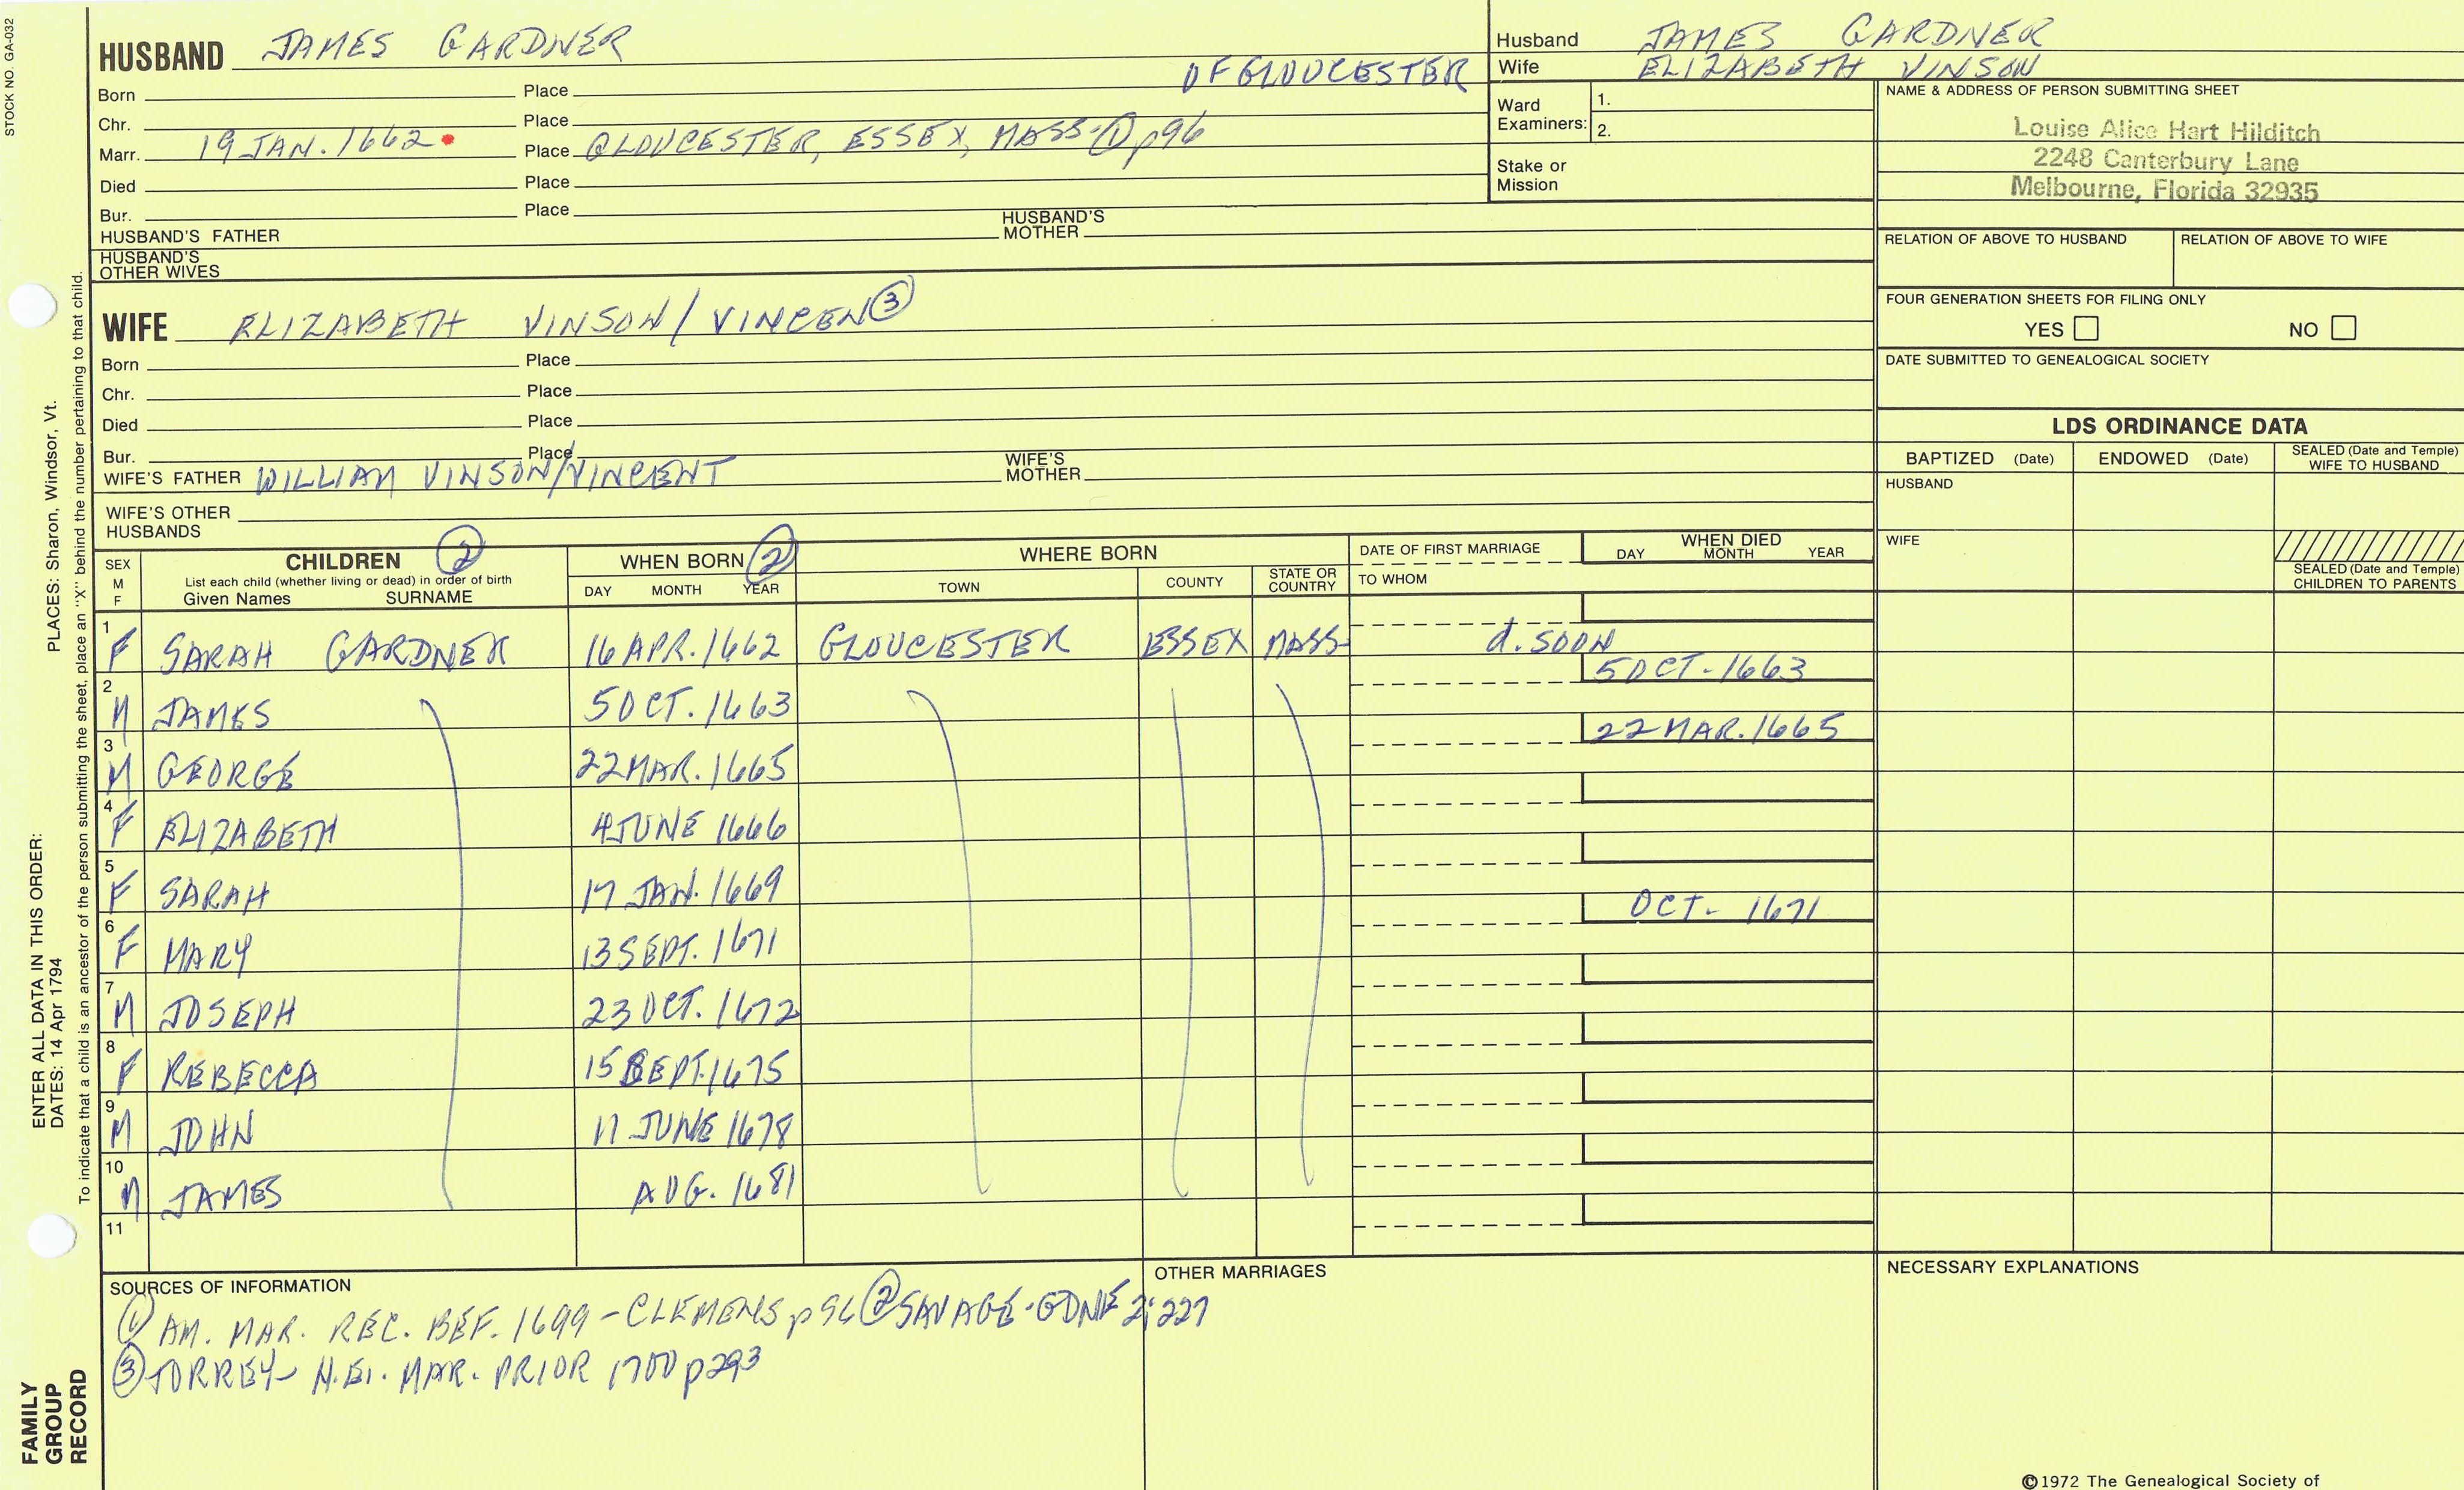 STOCK NO. GA-032
HUSBAND JAMES GARDNER
OF GLOUCESTER
Born Place
Chr. Place
Marr. 19 JAN. 1662 Place GLOUCESTER, ESSEX, MASS- ① p96
Died Place
Bur. Place
HUSBAND'S FATHER HUSBAND'S MOTHER
HUSBAND'S OTHER WIVES
WIFE ELIZABETH VINSON/VINCEN ③
Born Place
Chr. Place
Died Place
Bur. Place
WIFE'S FATHER WILLIAM VINSON/VINCENT WIFE'S MOTHER
WIFE'S OTHER HUSBANDS
Husband JAMES GARDNER
Wife ELIZABETH VINSON
Ward Examiners: 1.
2.
Stake or Mission
NAME & ADDRESS OF PERSON SUBMITTING SHEET
Louise Alice Hart Hilditch
2248 Canterbury Lane
Melbourne, Florida 32935
RELATION OF ABOVE TO HUSBAND RELATION OF ABOVE TO WIFE
FOUR GENERATION SHEETS FOR FILING ONLY
YES NO
DATE SUBMITTED TO GENEALOGICAL SOCIETY
LDS ORDINANCE DATA
BAPTIZED (Date) ENDOWED (Date) SEALED (Date and Temple) WIFE TO HUSBAND
HUSBAND
WIFE
SEALED (Date and Temple) CHILDREN TO PARENTS
SEX M F
CHILDREN ②
List each child (whether living or dead) in order of birth
Given Names SURNAME
WHEN BORN ②
DAY MONTH YEAR
WHERE BORN
TOWN COUNTY STATE OR COUNTRY
DATE OF FIRST MARRIAGE
TO WHOM
WHEN DIED
DAY MONTH YEAR
1 F SARAH GARDNER 16 APR. 1662 GLOUCESTER ESSEX MASS- d. SOON
2 M JAMES 5 OCT. 1663 5 OCT- 1663
3 M GEORGE 22 MAR. 1665 22 MAR. 1665
4 F ELIZABETH 4 JUNE 1666
5 F SARAH 17 JAN. 1669
6 F MARY 13 SEPT. 1671 OCT- 1671
7 M JOSEPH 23 OCT. 1672
8 F REBECCA 15 SEPT. 1675
9 M JOHN 17 JUNE 1678
10 M JAMES AUG. 1681
11
SOURCES OF INFORMATION
① AM. MAR. REC. BEF. 1699 - CLEMENS p96 ② SAVAGE - GDNE 2:227
③ TORREY - N.E. MAR. PRIOR 1700 p293
OTHER MARRIAGES
NECESSARY EXPLANATIONS
©1972 The Genealogical Society of
PLACES: Sharon, Windsor, Vt.
ENTER ALL DATA IN THIS ORDER:
DATES: 14 Apr 1794
To indicate that a child is an ancestor of the person submitting the sheet, place an "X" behind the number pertaining to that child.
FAMILY
GROUP
RECORD